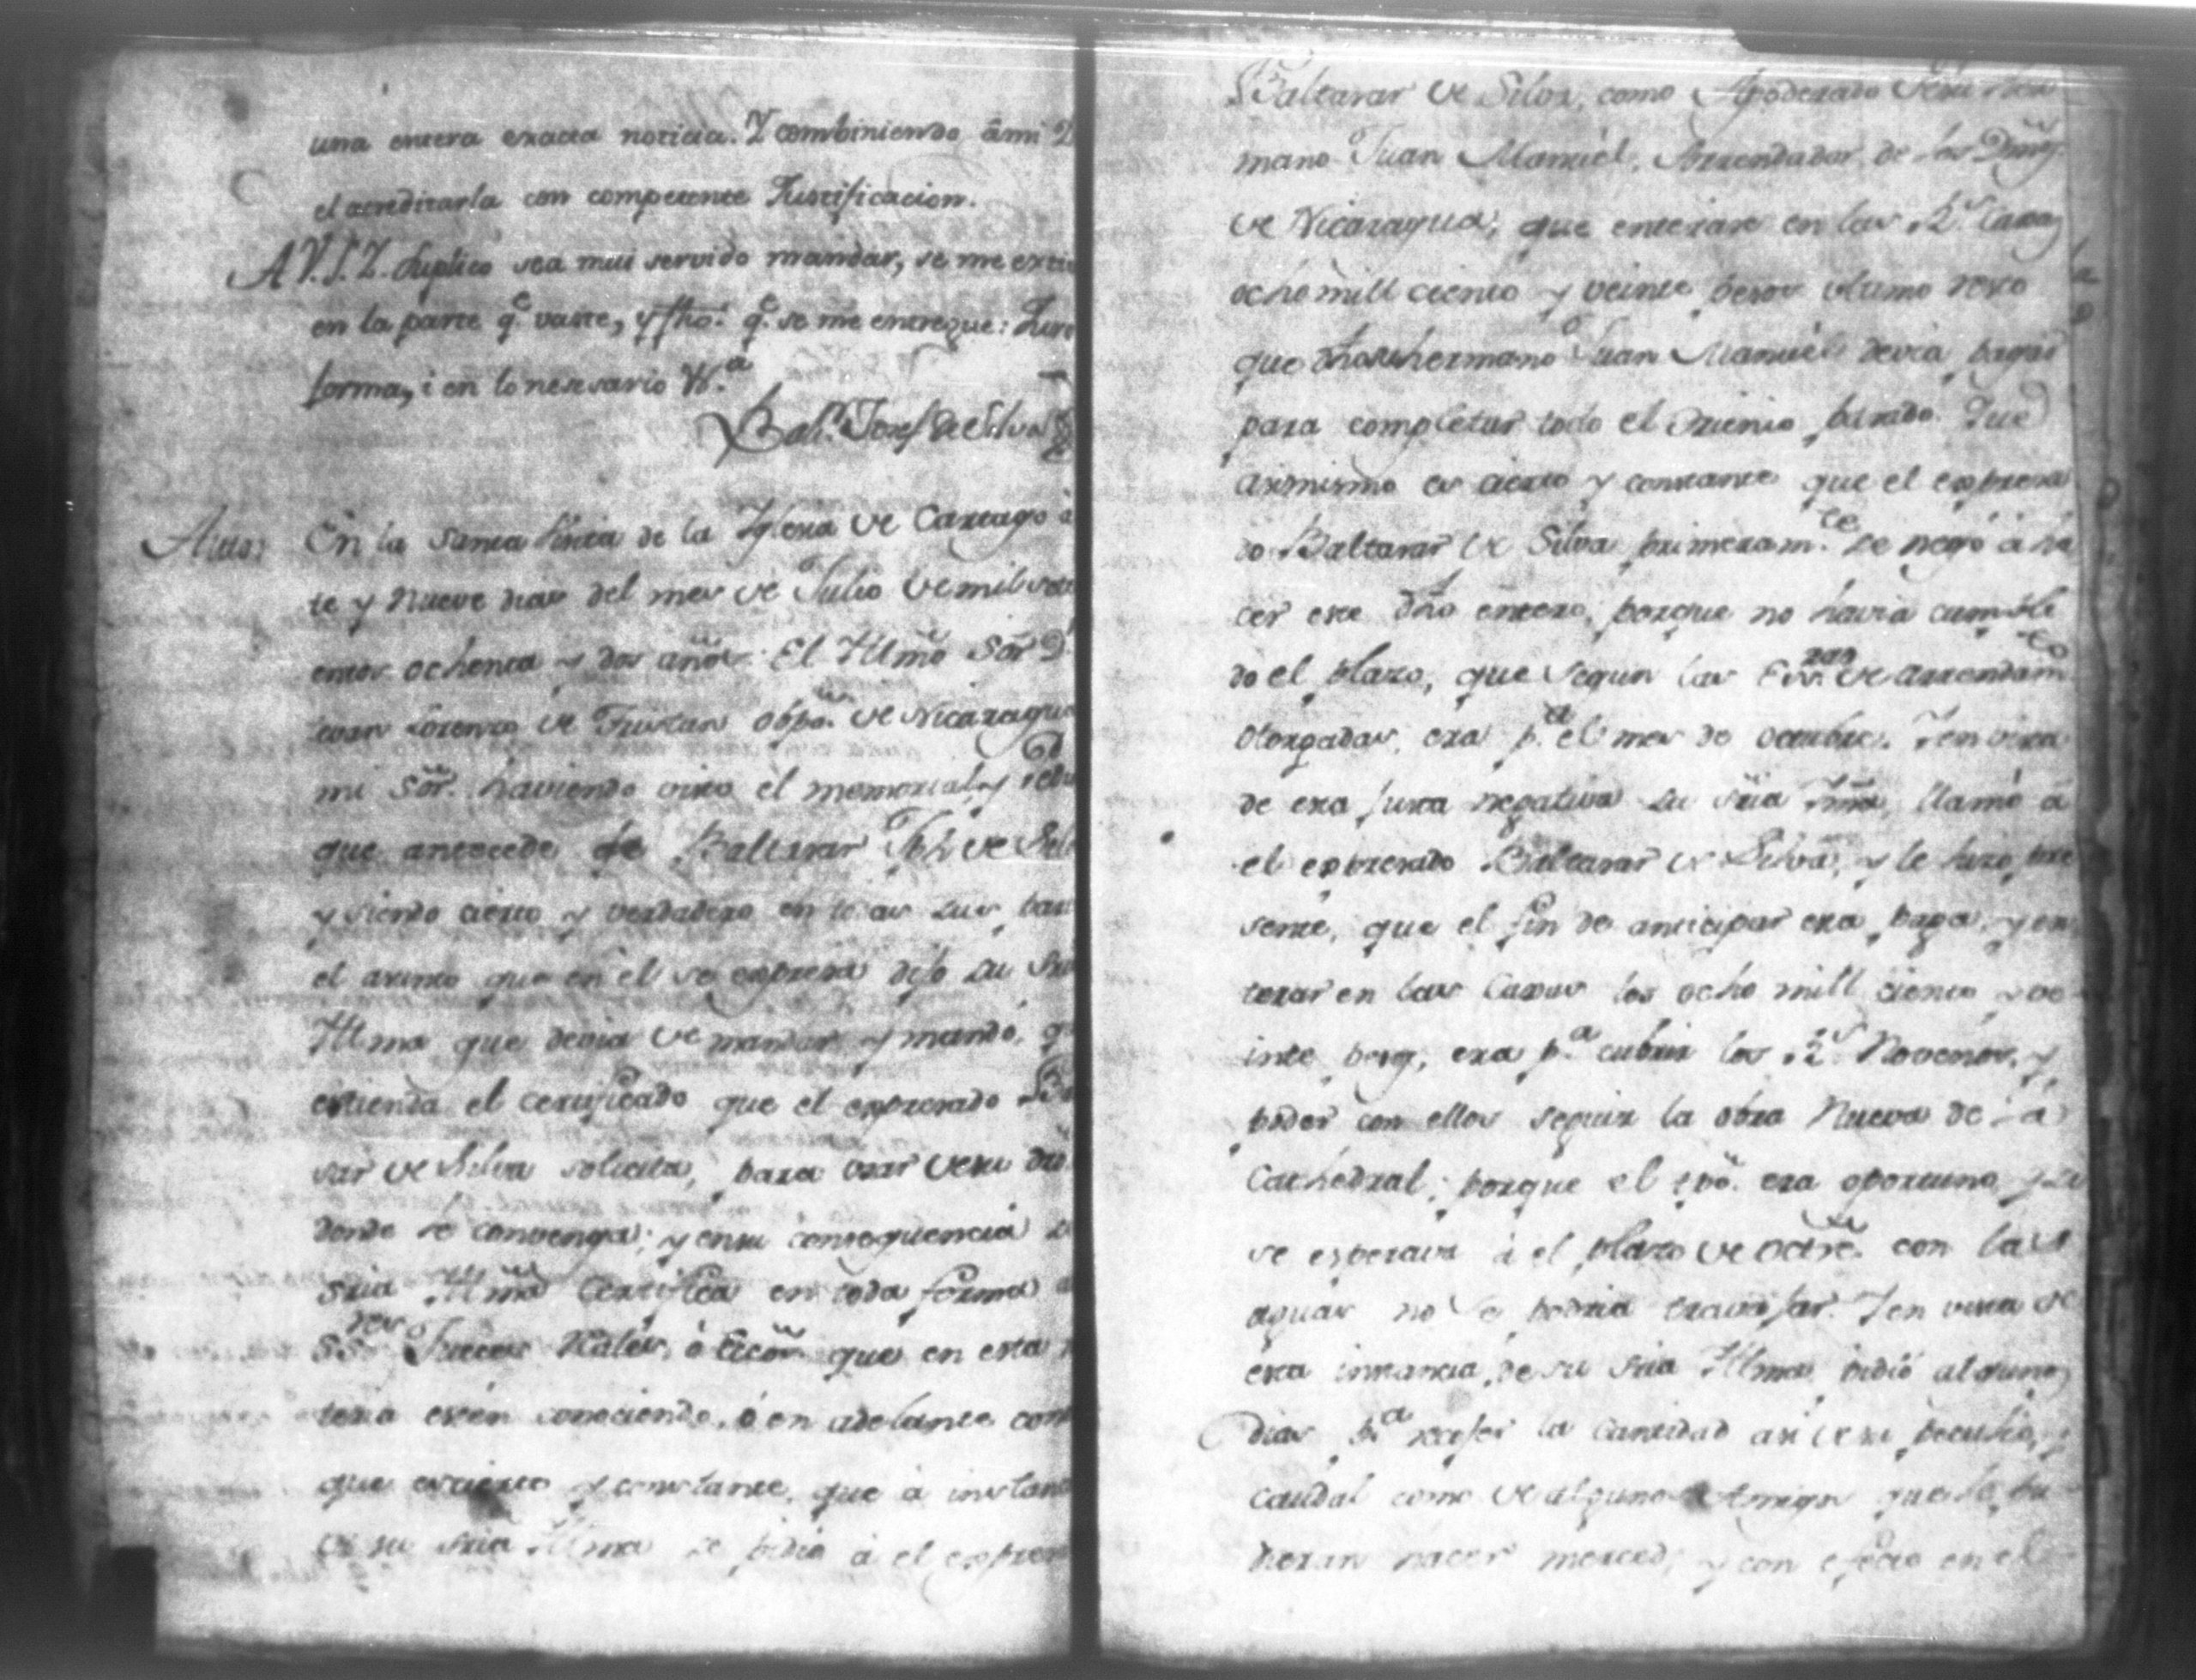 una entera exacta noticia. Y combiniendo âmi D
el acreditarla con competente Justificacion.
A V.S.Y. suplico sea mui servido mandar, se me extie
en la parte q.e vaste, y fho. q.e se me entregue: Juro
forma, i en lo nesesario V.a
Balt.r Josef de Silva
Auto: En la Santa Visita de la Yglesia de Cartago à
te y Nueve dias del mes de Julio de mil sete
entos ochenta y dos años: El Yllmõ Sõr D.
evan Lorenzo de Tristan obpõ. de Nicaragua
mi Sõr. haviendo visto el memorial, y
que antecede de Baltasar Jph de Sil
y siendo cierto y verdadero en todas sus par
el asunto que en el se expresa dijo su Sria
Yllma que devia de mandar y mandó, q
extienda el certificado que el expresado Ba
sar de Silva solicita, para usar de su dro.
donde le convenga; y en su consequencia su
Sria Yllmã Certifica en toda forma a
SS.res Jueces Rales, ô Eccõs que en esta
teria estén conociendo, ó en adelante con
que es cierto y constante, que à instan
de su Sria Yllma se pidió à el expres
Baltasar de Silva, como Apoderado de su her
mano Juan Manuel, Arrendador de los Diezm.s
de Nicaragua, que enterase en las R.s Caxas
ocho mill ciento y veinte pesos ultimo resto
que dho su hermano Juan Manuel devia pagar
para completar todo el trienio pasado. Que
asimismo es cierto y constante que el expresa
do Baltasar de Silva primeram.te se negó à ha
cer este dho entero, porque no havia cumpli
do el plazo, que segun las Ess.ras de arrendam.to
otorgadas, era p.a el mes de octubre. Y en vista
de esta justa negativa su Sria Yllmã, llamó à
el expresado Baltasar de Silva, y le hizo pre
sente, que el fin de anticipar esta paga, y en
terar en las Caxas los ocho mill ciento y ve
inte pesos, era p.a cubrir los R.s Novenos, y
poder con ellos seguir la obra Nueva de la
Cathedral; porque el tpõ. era oportuno, y si
se esperava à el plazo de octre. con las
aguas no se podria travajar. Y en vista de
esta instancia de su Sria Yllma pidió algunos
dias p.a recojer la cantidad asi de su peculio,
caudal como de algunos Amigos que le pu
dieran hacer merced; y con efecto en el